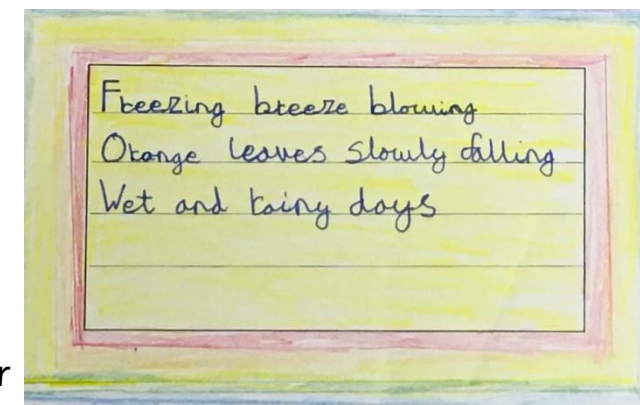 Freezing breeze blowing
Orange leaves slowly falling
Wet and rainy days
r